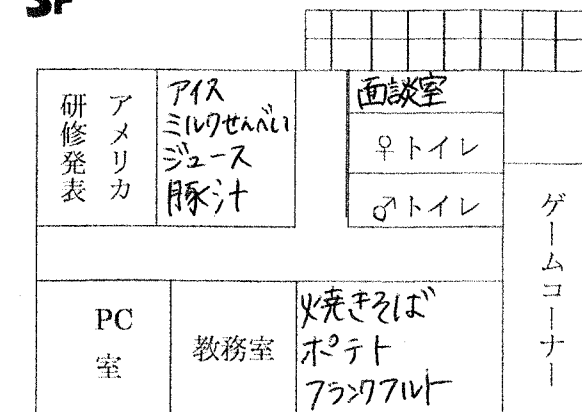 3F
アメリカ
研修発表
アイス
ミルクせんべい
ジュース
豚汁
面談室
♀トイレ
♂トイレ
ゲームコーナー
PC
室
教務室
焼きそば
ポテト
フランクフルト